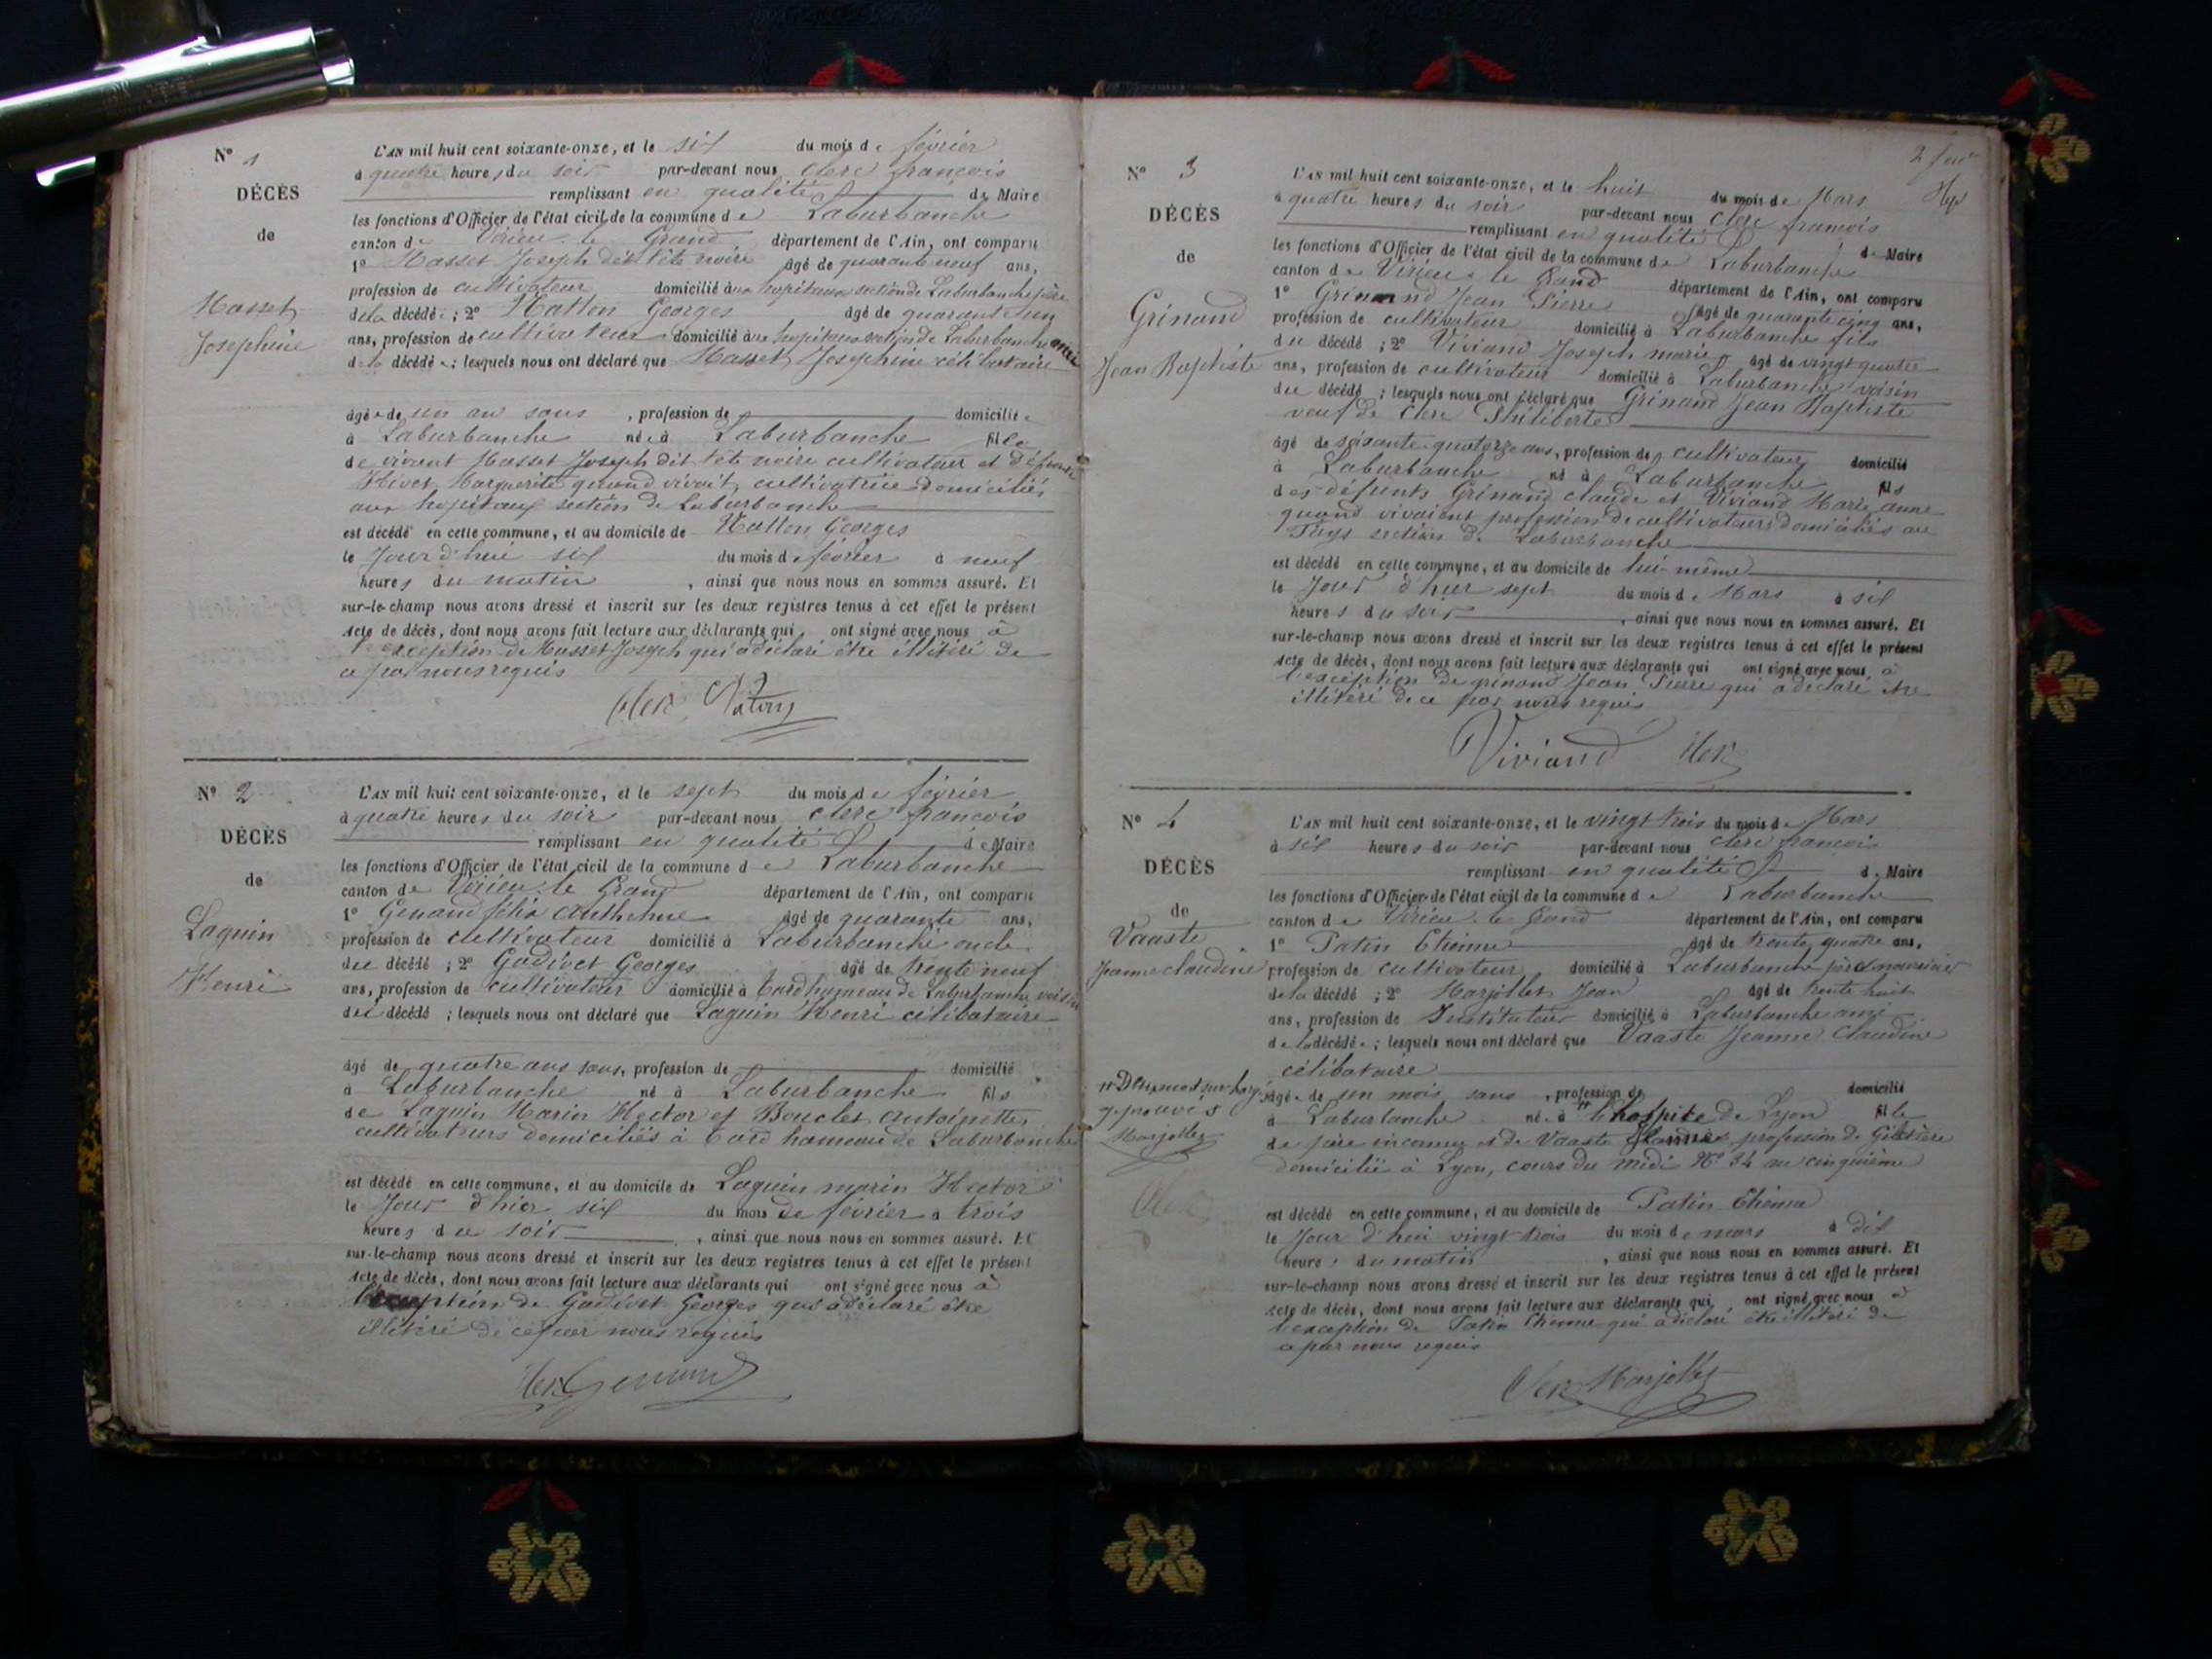 N° 1
DÉCÈS
de
Masset
Josephine
L'AN mil huit cent soixante-onze, et le six du mois de février
à quatre heures du soir par-devant nous clerc francois
remplissant en qualité de Maire
les fonctions d'Officier de l'état civil de la commune de Laburbanche
canton de Virieu-le Grand département de l'Ain, ont comparu
1° Masset Joseph dit tête noire âgé de quarante neuf ans,
profession de cultivateur domicilié aux hopitaux section de Laburbanche père
de la décédée ; 2° Georges âgé de quarante un
ans, profession de cultivateur domicilié aux hopitaux section de Laburbanche ami
de la décédée ; lesquels nous ont déclaré que Masset Josephine célibataire
âgée de un an sans , profession de domiciliée
à Laburbanche née à Laburbanche fille
de vivant Masset Joseph dit tête noire cultivateur et défunte
Marguerite quand vivait cultivatrice domiciliés
aux hopitaux section de Laburbanche
est décédé en cette commune, et au domicile de Georges
le Jour d'hui six du mois de février à neuf
heures du matin , ainsi que nous nous en sommes assuré. Et
sur-le-champ nous avons dressé et inscrit sur les deux registres tenus à cet effet le présent
Acte de décès, dont nous avons fait lecture aux déclarants qui ont signé avec nous à
l'exception de Masset Joseph qui a déclaré être illitéré de
ce par nous requis
Clerc
N° 2
DÉCÈS
de
Laguin
Henri
L'AN mil huit cent soixante-onze, et le sept du mois de février
à quatre heures du soir par-devant nous clerc francois
remplissant en qualité de Maire
les fonctions d'Officier de l'état civil de la commune de Laburbanche
canton de Virieu-le Grand département de l'Ain, ont comparu
1° Genand félix Anthelme âgé de quarante ans,
profession de cultivateur domicilié à Laburbanche oncle
du décédé ; 2° Gadivet Georges âgé de trente neuf
ans, profession de cultivateur domicilié à hameau de Laburbanche voisin
du décédé ; lesquels nous ont déclaré que Laguin Henri célibataire
âgé de quatre ans sans, profession de domicilié
à Laburbanche né à Laburbanche fils
de Laguin Marin Hector et Bouclet Antoinette
cultivateurs domiciliés à hameau de Laburbanche
est décédé en cette commune, et au domicile de Laguin marin Hector
le Jour d'hier six du mois de février à trois
heures du soir , ainsi que nous nous en sommes assuré. Et
sur-le-champ nous avons dressé et inscrit sur les deux registres tenus à cet effet le présent
Acte de décès, dont nous avons fait lecture aux déclarants qui ont signé avec nous à
l'exception de Gadivet Georges qui a déclaré être
illitéré de ce par nous requis
Clerc Genand
2 feu
N° 3
DÉCÈS
de
Grinand
Jean Baptiste
L'AN mil huit cent soixante-onze, et le huit du mois de Mars
à quatre heures du soir par-devant nous clerc francois
remplissant en qualité de Maire
les fonctions d'Officier de l'état civil de la commune de Laburbanche
canton de Virieu-le Grand département de l'Ain, ont comparu
1° Grinand Jean Pierre âgé de quarante cinq ans,
profession de cultivateur domicilié à Laburbanche fils
du décédé ; 2° Viviand Joseph marie âgé de vingt quatre
ans, profession de cultivateur domicilié à Laburbanche voisin
du décédé ; lesquels nous ont déclaré que Grinand Jean Baptiste
veuf de Clerc Philiberte
âgé de soixante-quatorze ans, profession de cultivateur domicilié
à Laburbanche né à Laburbanche fils
des défunts Grinand claude et Viviand Marie anne
quand vivaient profession de cultivateurs domiciliés au
section de Laburbanche
est décédé en cette commune, et au domicile de lui-même
le Jour d'hier sept du mois de Mars à six
heures du soir , ainsi que nous nous en sommes assuré. Et
sur-le-champ nous avons dressé et inscrit sur les deux registres tenus à cet effet le présent
Acte de décès, dont nous avons fait lecture aux déclarants qui ont signé avec nous à
l'exception de grinand Jean Pierre qui a déclaré être
illitéré de ce par nous requis
Viviand Clerc
N° 4
DÉCÈS
de
Vaaste
Jeanne claudine
L'AN mil huit cent soixante-onze, et le vingt trois du mois de Mars
à six heures du soir par-devant nous clerc francois
remplissant en qualité de Maire
les fonctions d'Officier de l'état civil de la commune de Laburbanche
canton de Virieu-le Grand département de l'Ain, ont comparu
1° Patin Etienne âgé de trente quatre ans,
profession de cultivateur domicilié à Laburbanche père nourricier
de la décédé ; 2° Marjollet Jean âgé de trente huit
ans, profession de Instituteur domicilié à Laburbanche ami
de la décédée ; lesquels nous ont déclaré que Vaaste Jeanne Claudine
célibataire
Deux mots surchargés
approuvés
Marjollet
Clerc
âgée de un mois sans , profession de domicilié
à Laburbanche née à l'hospice de Lyon fille
de père inconnu et de Vaaste profession de Giletière
domiciliée à Lyon, cours du midi N° 34 au cinquième
est décédé en cette commune, et au domicile de Patin Etienne
le Jour d'hui vingt trois du mois de mars à dix
heures du matin , ainsi que nous nous en sommes assuré. Et
sur-le-champ nous avons dressé et inscrit sur les deux registres tenus à cet effet le présent
Acte de décès, dont nous avons fait lecture aux déclarants qui ont signé avec nous à
l'exception de Patin Etienne qui a déclaré être illitéré de
ce par nous requis
Clerc Marjollet